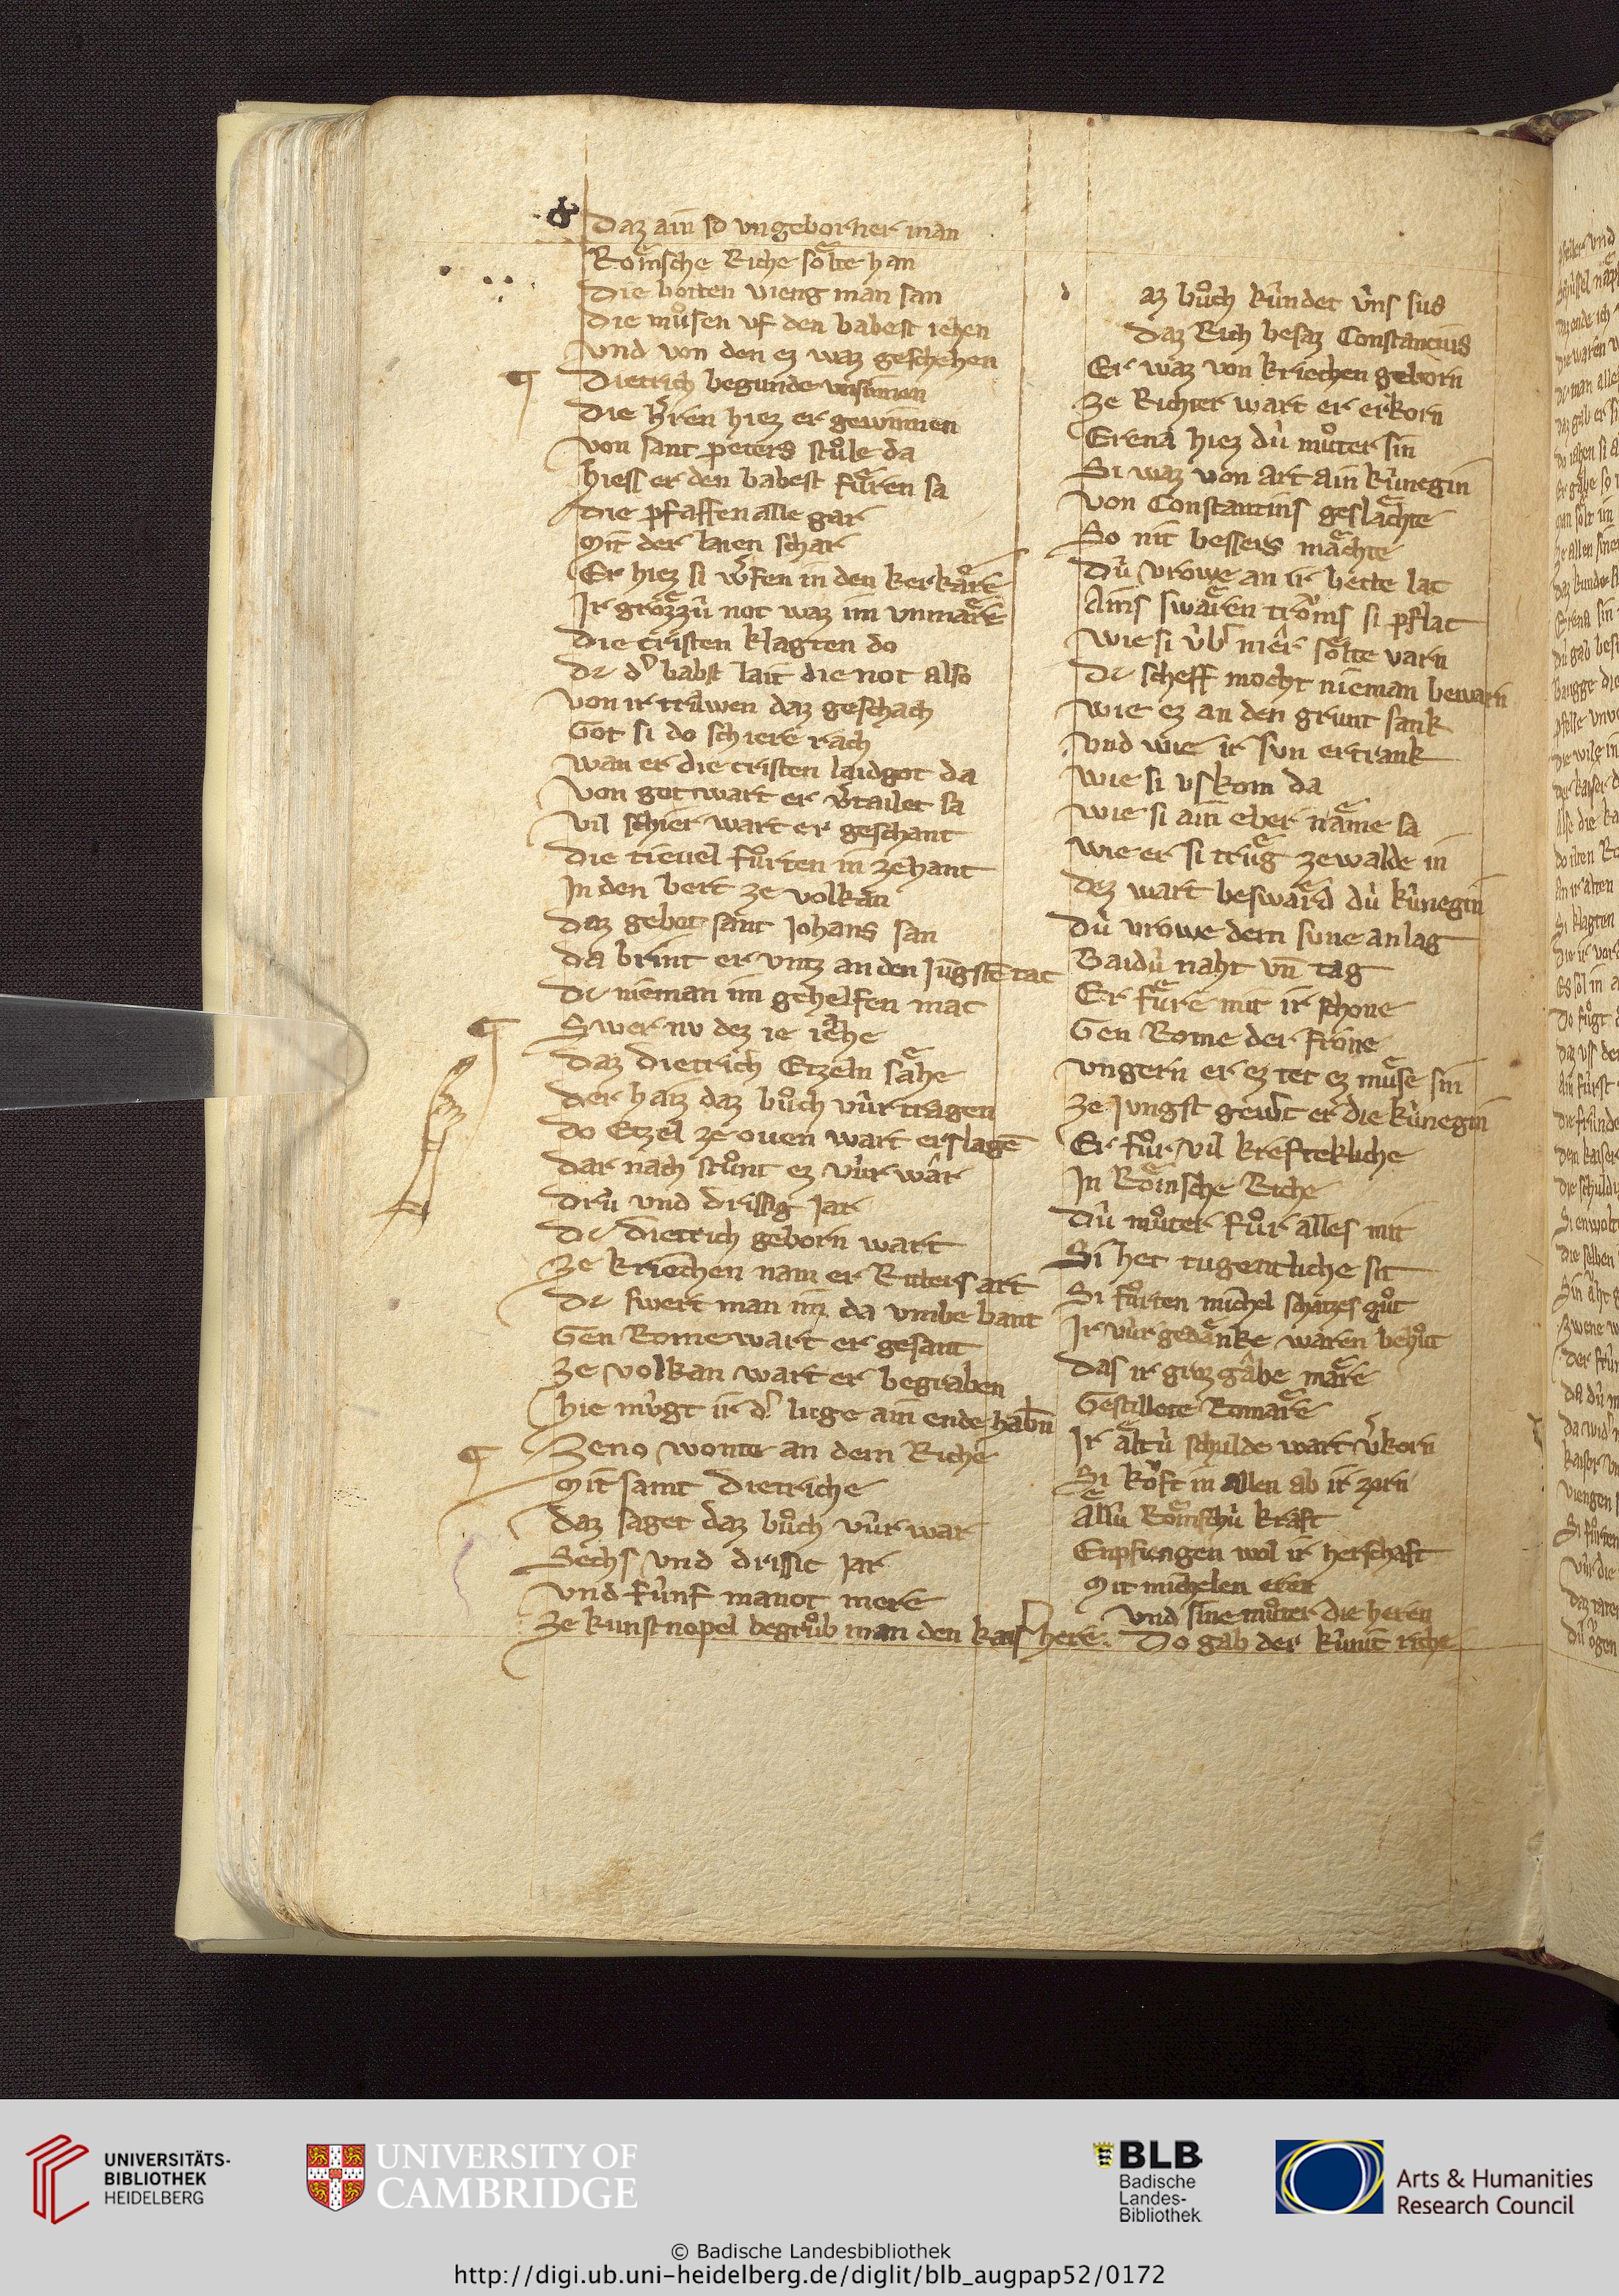 Daz ain so vngeborner man
Roͤmsche Riche soͤlte han
Die botten vieng man san
Die muͦsen vf den babest iehen
Vnd von den ez waz geschehen
¶ Dietrich begunde vnsinnen
Die hren hiez er gewinnen
Von sant peters stuͦle da
hiess er den babest fuͤren sa
Die pfaffen alle gar
Mit der laien schar
Er hiez si w͛fen in den kerkaͤre
Ir groͤzzuͥ not waz im vnmaͤre
Die cristen klagten do
Dc d͛ babst lait die not also
Von ir truͥwen daz geschach
Got si do schiere rach
Wan er die cristen laidgot da
Von got wart er v͛tailet sa
Vil schier wart er geschant
Die tieuel fuͦrten in zehant
In den bert ze volkan
Daz gebot sant Johans san
Da brint er vntz an den Jungstē tac
Dc nieman im gehelfen mac
¶ Swer nv dez ie iaͤhe
Daz Dietrich Etzeln saͤhe
Der haiz daz buͦch vuͥr tragen
Do Etzel ze ouen wart erslagē
Dar nach stuͦnt ez vuͥr war
Druͥ vnd drissig Jar
Dc Dietrich geborn wart
Ze kriechen nam er Ritters art
Dc swert man im da vmbe bant
Gen Rome wart er gesant
Ze volkan wart er begraben
hie muͥgt ir d͛ luge ain ende habn
¶ Zeno wonte an dem Riche
Mit samt Dietriche
Daz saget daz buͦch vuͥr war
Sechs vnd drissic Jar
Vnd fuͥnf manot mere
Ze kunstnopel begruͦb man den kais͛ here.
d az buͦch kuͥndet vͥns sus
Daz Rich besaz Constancius
Er waz von kriechen geborn
Ze Richter wart er erkorn
Erena hiez duͥ muͦter sin
Si waz von art ain kuͥnegin
Von Constantins geslaͤchte
So nit bessers maͤchte
Duͥ vrowe an ir bette lac
Ains swaͤren troͮms si pflac
Wie si vͥb͛ mer soͤlte varn
Dc scheff mocht nieman bewarn
Wie ez an den grunt sank
Vnd wie ir sun ertrank
Wie si vskom da
Wie si ain eber naͤme sa
Wie er si truͤg ze walde in
Dez wart beswaͤrd duͥ kuͥnegin
Duͥ vrowe dem sune an lag
Baiduͥ naht vn̄ tag
Er fuͤre mit ir schone
Gen Rome der frone
Vngern er ez tet ez muͤse sin
Ze Jvngst gewt er die kuͥnegin
Er fuͦr vil krefteklliche
In Roͤmsche Riche
Duͥ muͦter fuͦr alles mit
Si het tugentliche sit
Si fuͦrten michel schatzes guͦt
Ir vuͥr gedaͤnke waren behuͦt
Das ir groz gaͤbe maͤre
Gestillete Romaͤre
Ir aͤltuͥ schulde wart v͛korn
Si koͮft in allen ab ir zorn
Aͤlluͥ Roͤmschuͥ kraft
Enpfiengen wol ir herschaft
Mit michelen eren
Vnd sine muͦter die heren
Do gab der kuͥnic riche
UNIVERSITÄTS-
BIBLIOTHEK
HEIDELBERG
UNIVERSITY OF
CAMBRIDGE
BLB
Badische
Landes-
Bibliothek
Arts & Humanities
Research Council
© Badische Landesbibliothek
http://digi.ub.uni-heidelberg.de/diglit/blb_augpap52/0172